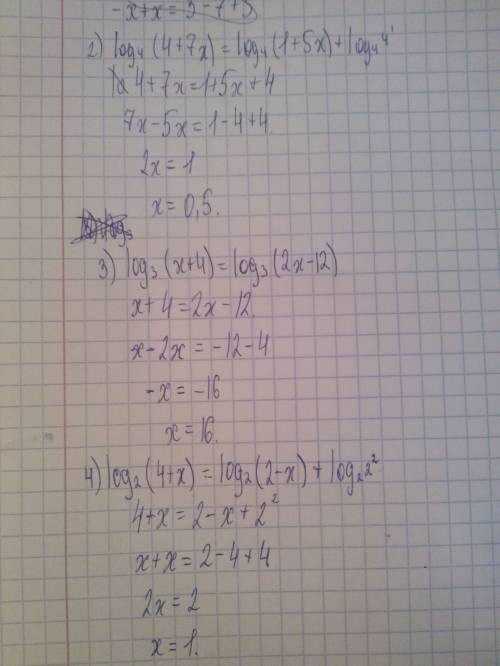 -x+x=3-7+3
2) log₄(4+7x)=log₄(1+5x)+log₄4¹
4+7x=1+5x+4
7x-5x=1-4+4
2x=1
x=0,5.
3) log₃(x+4)=log₃(2x-12)
x+4=2x-12.
x-2x=-12-4
-x=-16
x=16.
4) log₂(4+x)=log₂(2-x)+log₂2²
4+x=2-x+2²
x+x=2-4+4
2x=2
x=1.